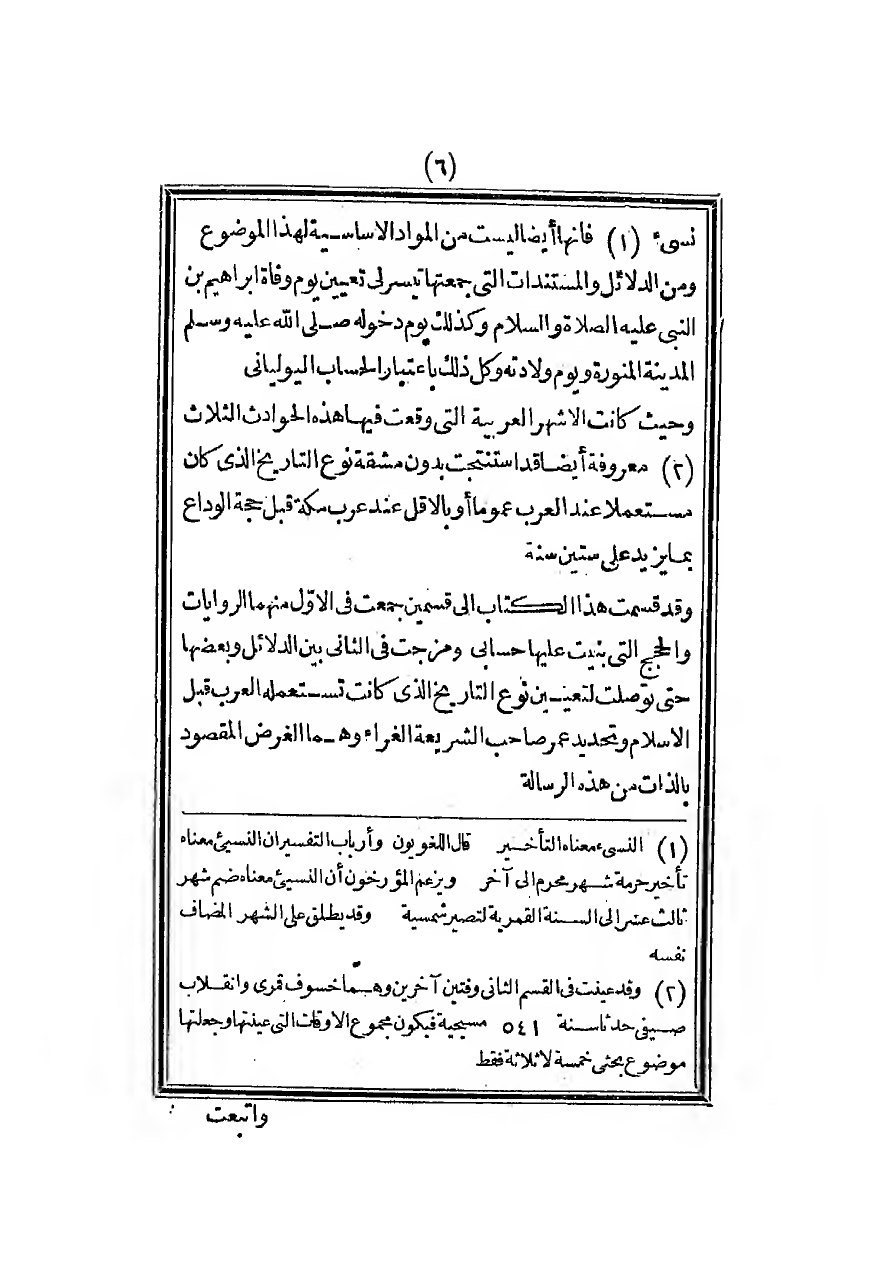 (٦)
نسىء (١) فانها أيضا ليست من المواد الاساسية لهذا الموضوع
ومن الدلائل والمستندات التى جمعتها تيسر لى تعيين يوم وفاة ابراهيم بن
النبى عليه الصلاة والسلام وكذلك يوم دخوله صلى الله عليه وسلم
المدينة المنورة ويوم ولادته وكل ذلك باعتبار الحساب اليوليانى
وحيث كانت الاشهر العربية التى وقعت فيها هذه الحوادث الثلاث
(٢) معروفة أيضا قد استنتجت بدون مشقة نوع التاريخ الذى كان
مستعملا عند العرب عموما أو بالاقل عند عرب مكة قبل حجة الوداع
بما يزيد على ستين سنة
وقد قسمت هذا الكتاب الى قسمين جمعت فى الاوّل منهما الروايات
والحجج التى بنيت عليها حسابى ومزجت فى الثانى بين الدلائل وبعضها
حتى توصلت لتعيين نوع التاريخ الذى كانت تستعمله العرب قبل
الاسلام وتحديد عمر صاحب الشريعة الغراء وهما الغرض المقصود
بالذات من هذه الرسالة
(١) النسىء معناه التأخير قال اللغويون وأرباب التفسير ان النسيئ معناه
تأخير حرمة شهر محرم الى آخر ويزعم المؤرخون أن النسيئ معناه ضم شهر
ثالث عشر الى السنة القمرية لتصير شمسية وقد يطلق على الشهر المضاف
نفسه
(٢) وقد عينت فى القسم الثانى وقتين آخرين وهما خسوف قمرى وانقلاب
صيفى حدثا سنة ٥٤١ مسيحية فيكون مجموع الاوقات التى عينتها وجعلتها
موضوع بحثى خمسة لا ثلاثة فقط
واتبعت